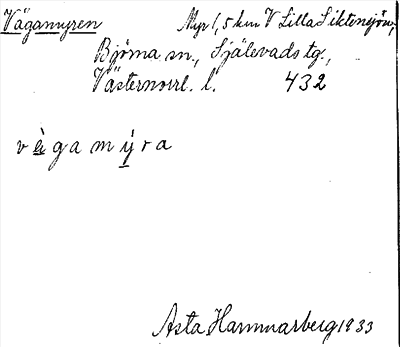 Vägamyren Myr 1,5 km V Lilla Siktensjön,
Björna sn., Själevads tg.,
Västernorrl. l. 432
vèga mýra
Asta Hammarberg 1933